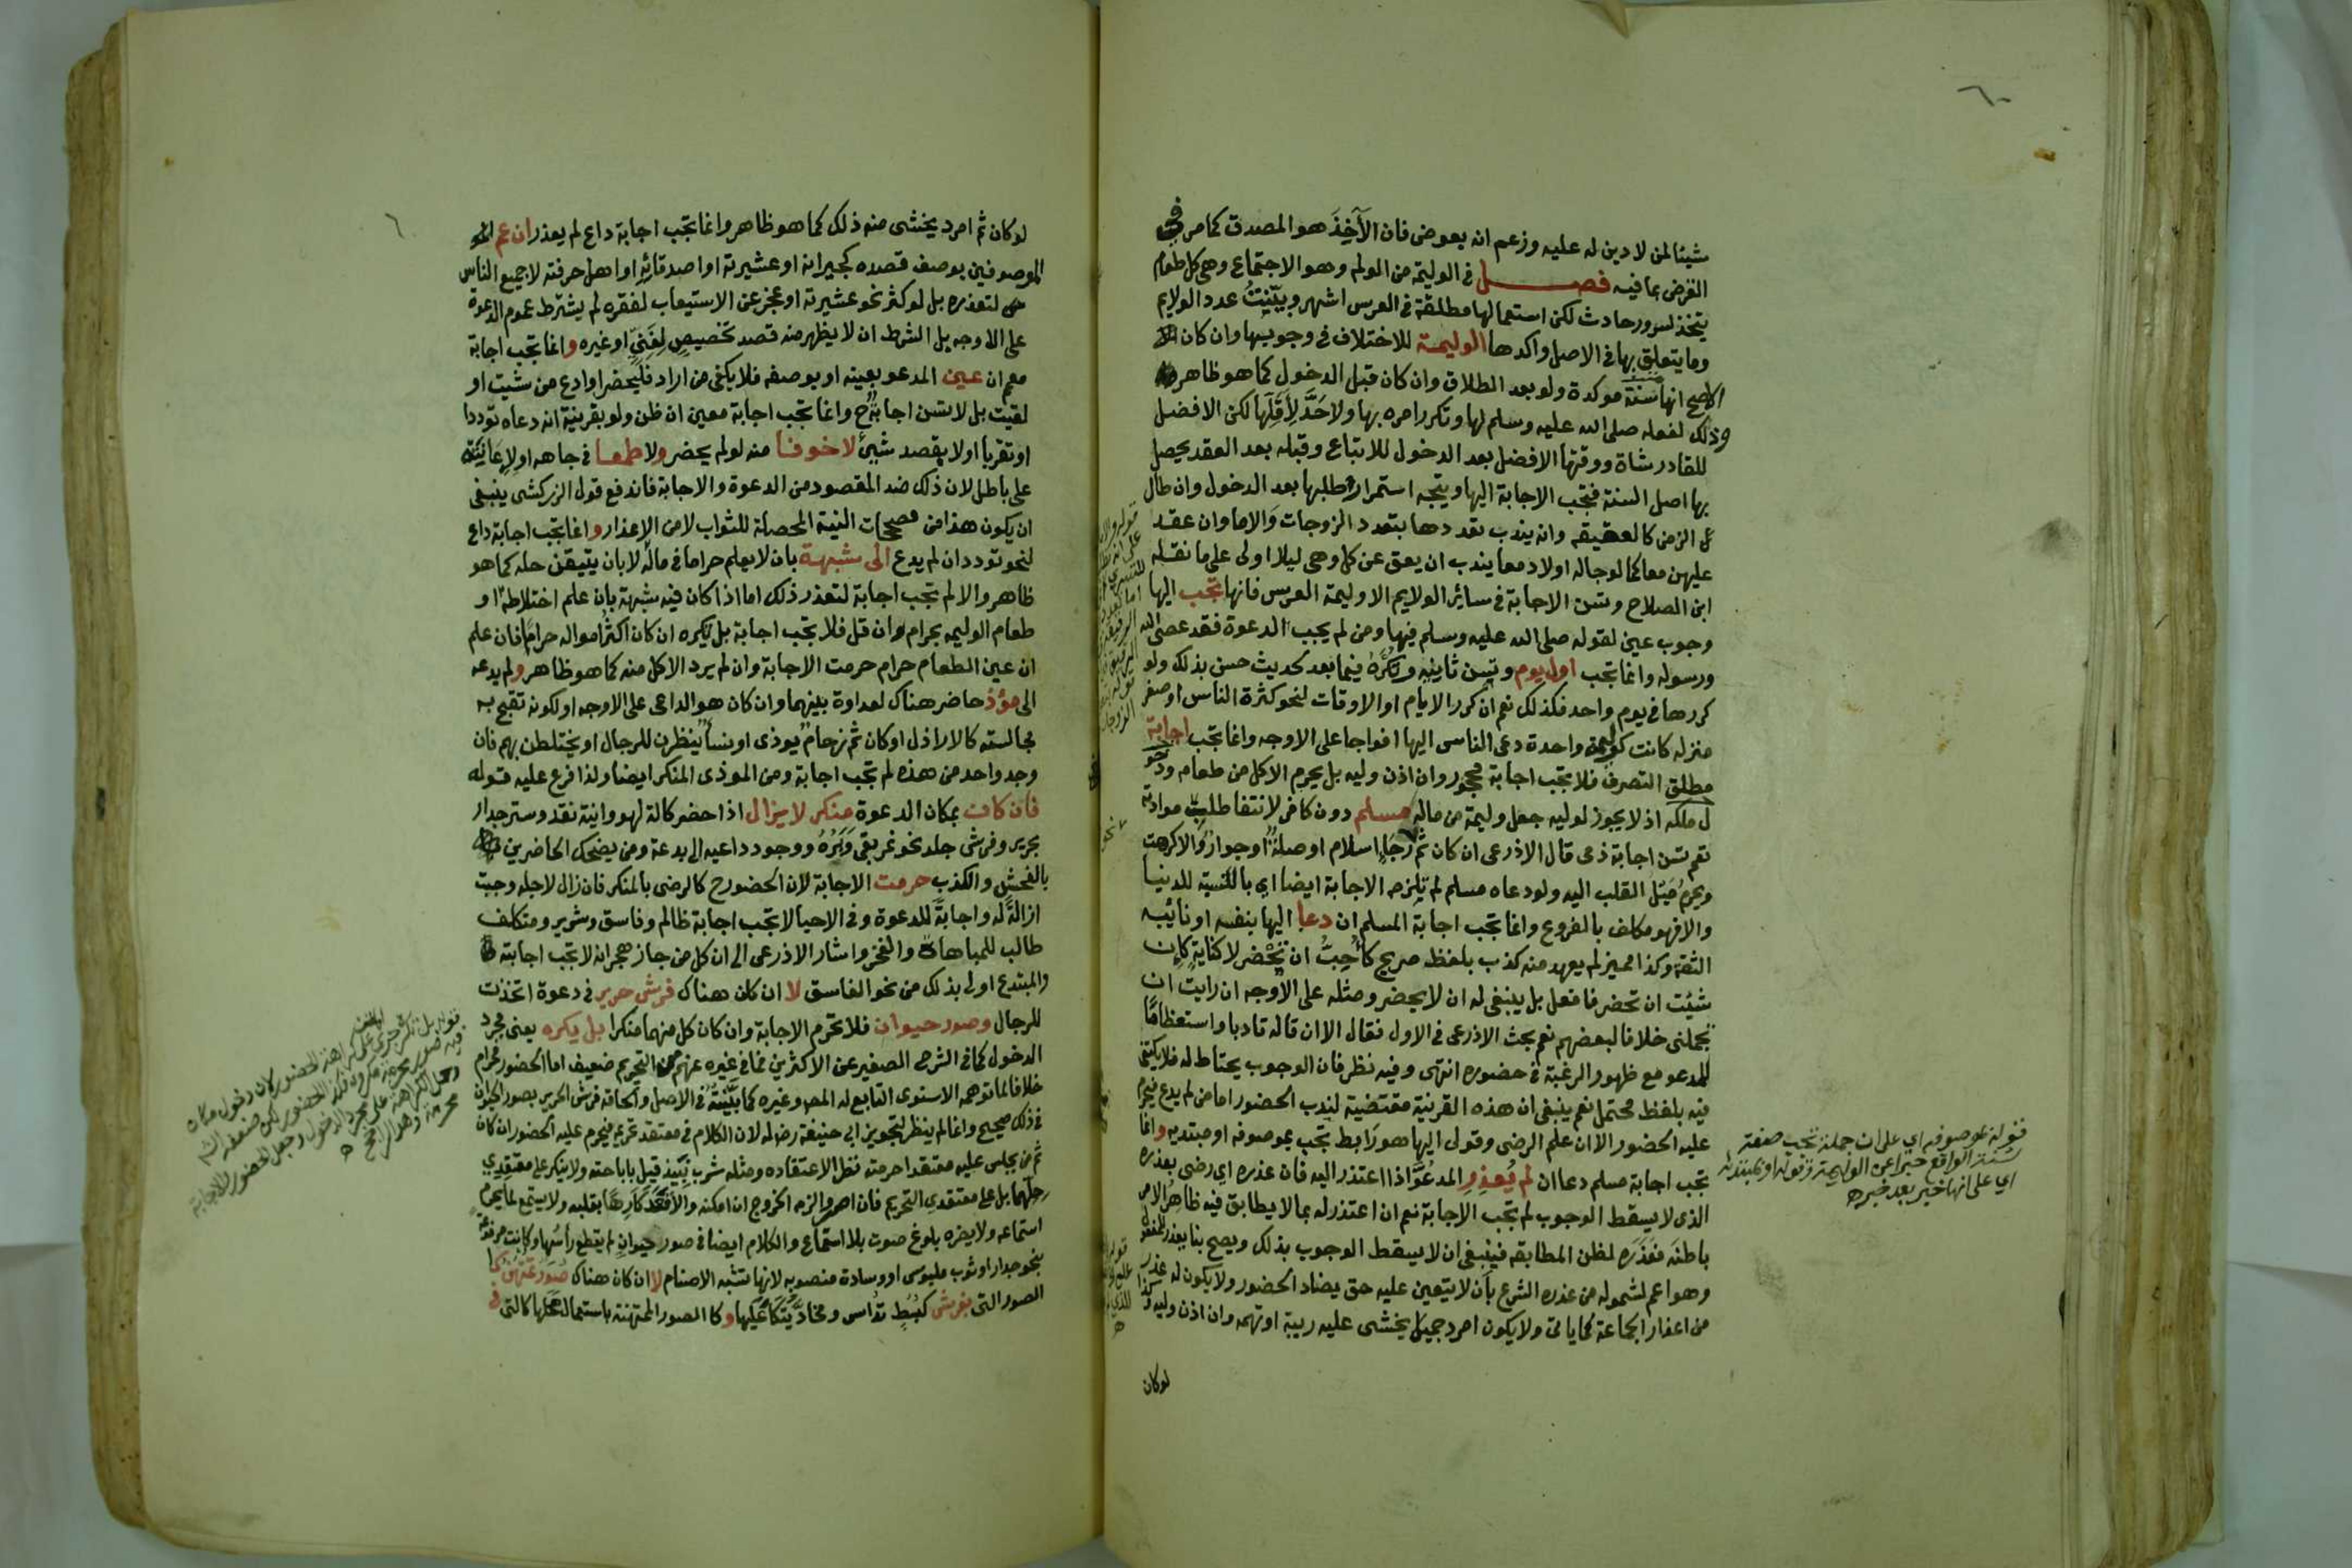 ٦٠
شيئا لمن لا دين له عليه وزعم انه بعوض فان الآخِذَ هو المصدق كما مر في
القرض بما فيه فصل في الوليمة من الولم وهو الاجتماع وهي كل طعام
يتخذ لسرور حادث لكن استعمالها مطلقة في العرس اشهر وبيّنتُ عدد الولايم
وما يتعلق بها في الاصل واكدها الوليمة للاختلاف في وجوبها وان كان
الاصح انها سنة موكدة ولو بعد الطلاق وان كان قبل الدخول كما هو ظاهر
وذلك لفعله صلى الله عليه وسلم لها وتكرر امره بها ولا حَدَّ لِأقَلِّها لكن الافضل
للقادر شاة ووقتها الافضل بعد الدخول للاتباع وقبله بعد العقد يحصل
بها اصل السنة فتجب الاجابة اليها ويتجه استمرار طلبها بعد الدخول وان طال
الزمن كالعقيقه وانه يندب تعددها بتعدد الزوجات والاما وان عقد
عليهن معا كما لو جاله اولاد معا يندب ان يعق عن كل وهي ليلا اولى على ما نقله
ابن الصلاح وتسن الاجابة في سائر الولايم الا وليمة العرس فانها تجب اليها
وجوب عين لقوله صلى الله عليه وسلم فيها ومن لم يجب الدعوة فقد عصى الله
ورسوله وانما تجب اول يوم وتسن ثانيه وتكره فيما بعد لحديث حسن بذلك ولو
كررها في يوم واحد فكذلك نعم ان كرر الايام او الاوقات لنحو كثرة الناس او صغر
منزله كانت كوليمة واحدة دعى الناس اليها افواجا على الاوجه وانما تجب اجابة
مطلق التصرف فلا تجب اجابة محجور وان اذن وليه بل يحرم الاكل من طعام
ملكه اذ لا يجوز لوليه جعل وليمة من ماله مسلم دون كافر لانتفا طلب موادته
نعم تسن اجابة ذمى قال الاذرعى ان كان ثم رَجَاءِ اسلام او صلة او جوار والا كرهت
ويحرم ميل القلب اليه ولو دعاه مسلم لم تلزمه الاجابة ايضا اي بالنسبة للدنيا
والا فهو مكلف بالفروع وانما تجب اجابة المسلم ان دعا اليها بنفسه او نائبه
الثقة وكذا مميز لم يعهد منه كذب بلفظ صريح كأُحِبُّ ان تحضر لا كناية كإن
شئت ان تحضر فافعل بل ينبغى له ان لا يحضر ومثله على الاوجه ان رايت ان
تجملنى خلافا لبعضهم نعم بحث الاذرعى في الاول فقال الا ان قاله تادبا واستعظامًا
للمدعو مع ظهور الرغبة في حضوره انتهى وفيه نظر فان الوجوب يحتاط له فلا يكتفى
فيه بلفظ محتمل نعم ينبغى ان هذه القرنية مقتضية لندب الحضور اما من لم يدع فيحرم
عليه الحضور الا ان علم الرضى وقول اليها هو رابط تجب بموصوفه او مبتدئه وانما
تجب اجابة مسلم دعا ان لم يُعذِرِ المدعُوَّ اذا اعتذر اليه فان عذره اي رضى بعذره
الذى لا يسقط الوجوب لم تجب الاجابة نعم ان اعتذر له بما لا يطابق فيه ظاهر الامر
باطنَه فعَذَرَه لظن المطابقه فينبغى ان لا يسقط الوجوب بذلك ويصح
وهو اعم لشموله من عذره الشرع بأن لا يتعين عليه حق يضاد الحضور ولا يكون له عذر
من اعذار الجماعة كما ياتى ولا يكون امرد جميل يخشى عليه ريبة او تهمه وان اذن وليه وكذا
لوكان
قوله بموصوفه اي على ان جملة تجب صفة
اي على انها خبر بعد خبر ه
٦
لو كان ثم امرد يخشى منه ذلك كما هو ظاهر وانما تجب اجابة داع لم يعذر ان عم
الموصوفين بوصف قصده كجيرانه او عشيرته او اصدقائه او اهل حرفته لا جميع الناس
لتعذره بل لو كثر نحو عشيرته او عجز عن الاستيعاب لفقره لم يشترط عموم الدعوة
على الاوجه بل الشرط ان لا يظهر منه قصد تخصيصٍ لِغَنيٍّ او غيره وانما تجب اجابة
معم ان عين المدعو بعينه او بوصفه فلا يكفى من اراد فليحضر او ادع من شيت او
لقيت بل لا تسن اجابةٌ ح وانما تجب اجابة معين ان ظن ولو بقرينة انه دعاه توددا
او تقربا او لا بقصد شيئ لا خوفا منه لو لم يحضر ولا طمعا في جاهه او لإعانته
على باطل لان ذلك ضد المقصود من الدعوة والاجابة فاندفع قول الزركشى ينبغى
ان يكون هذا من مصححات النية المحصلة للثواب لا من الاعذار وانما تجب اجابة داع
لنحو تودد ان لم يدع الى شبهة بان لا يعلم حراما في ماله لا بان يتيقن حله كما هو
ظاهر والا لم تجب اجابة لتعذر ذلك اما اذا كان فيه شبهة بان علم اختلاطه او
طعام الوليمه بحرام وان قل فلا تجب اجابة بل تكره ان كان اكثر امواله حراما فان علم
ان عين الطعام حرام حرمت الاجابة وان لم يرد الاكل منه كما هو ظاهر ولم يدعه
الى مؤذ حاضر هناك لعداوة بينهما وان كان هو الداعى على الاوجه او لكونه تقبح به
مجالسته كالاراذل او كان ثم زحام يوذى او نسا ينظرن للرجال او يختلطن بهم فان
وجد واحد من هذه لم تجب اجابة ومن الموذى المنكر ايضا ولذا فرع عليه قوله
فان كان بمكان الدعوة منكر لا يزال اذا حضر كالة لهو وانية نقد وستر جدار
بحرير وفرش جلد نحو نمر بقى وَبَرُهُ ووجود داعيه الى بدعة ومن يضحك الحاضرين
بالفحش والكذب حرمت الاجابة لان الحضور ح كالرضى بالمنكر فان زال لاجله وجبت
ازالةً له واجابةً للدعوة وفي الاحيا لا تجب اجابة ظالم وفاسق وشرير ومتكلف
طالب للمباهاة والفخر واشار الاذرعى الى ان كل من جاز هجرانه لا تجب اجابته
والمبتدع اولى بذلك من نحو الفاسق لا ان كان هناك فرش حرير في دعوة اتخذت
للرجال وصور حيوان فلا تحرم الاجابة وان كان كل منهما منكرا بل يكره يعنى مجرد
الدخول كما في الشرح الصغير عن الاكثرين فما في غيره عنهم من التحريم ضعيف اما الحضور فحرام
خلافا لما توهمه الاسنوى التابع له المص وغيره كما بيّنتُه في الاصل والحاقه فرش الحرير بصور الحيوان
في ذلك صحيح وانما لم ينظر لتجويز ابى حنيفة رض له لان الكلام في معتقد تحريمه فيحرم عليه الحضور ان كان
ثم من يجلس عليه معتقدا حرمته نظرا لاعتقاده ومثله شرب نبيذ قيل باباحته ولا ينكر على معتقدي
حِلِّهما بل على معتقدي التحريم فان اصر لزمه الخروج ان امكنه والا قعد كارها بقلبه ولا يستمع لما يحرم
استماعه ولا يضره بلوغ صوت بلا استماع والكلام ايضا في صور حيوان لم يقطع رأسُها وكانت مرفوعة
بنحو جدار او ثوب ملبوس او وسادة منصوبه لانها تشبه الاصنام لا ان كان هناك صُوَرٌ تمتهن كما
الصور التى بفرش كبُسُطٍ تداس ومخادَّ يُتكأ عليها وكا الصور الممتهنة باستعمال محلها كالتى في